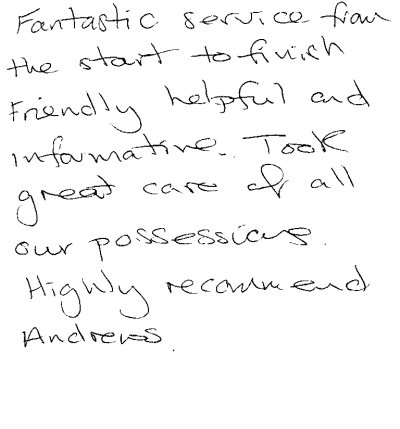 Fantastic service from
the start to finish
Friendly helpful and
informative. Took
great care of all
our possessions.
Highly recommend
Andrews.